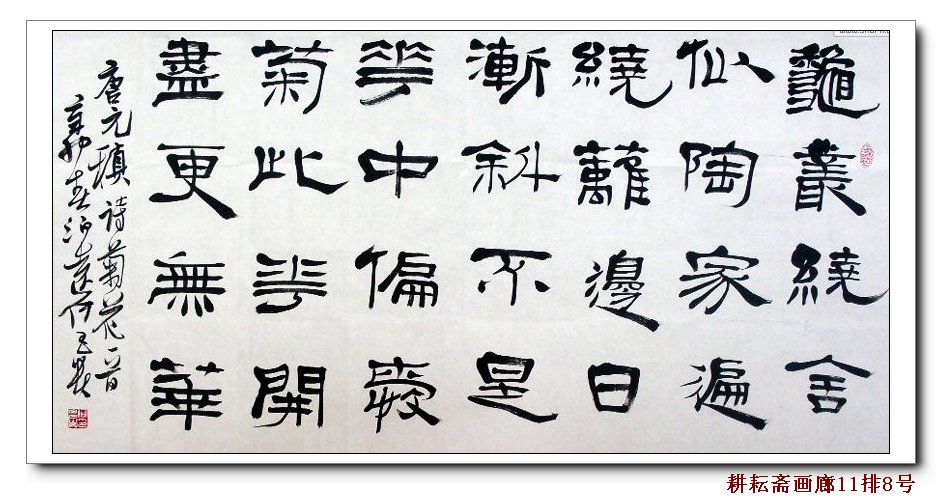 龝叢繞舍
似陶家遍
繞蘺邊日
漸斜不是
花中偏愛
菊此花開
盡更無華
唐元稹詩菊花一首
耕耘斋画廊11排8号